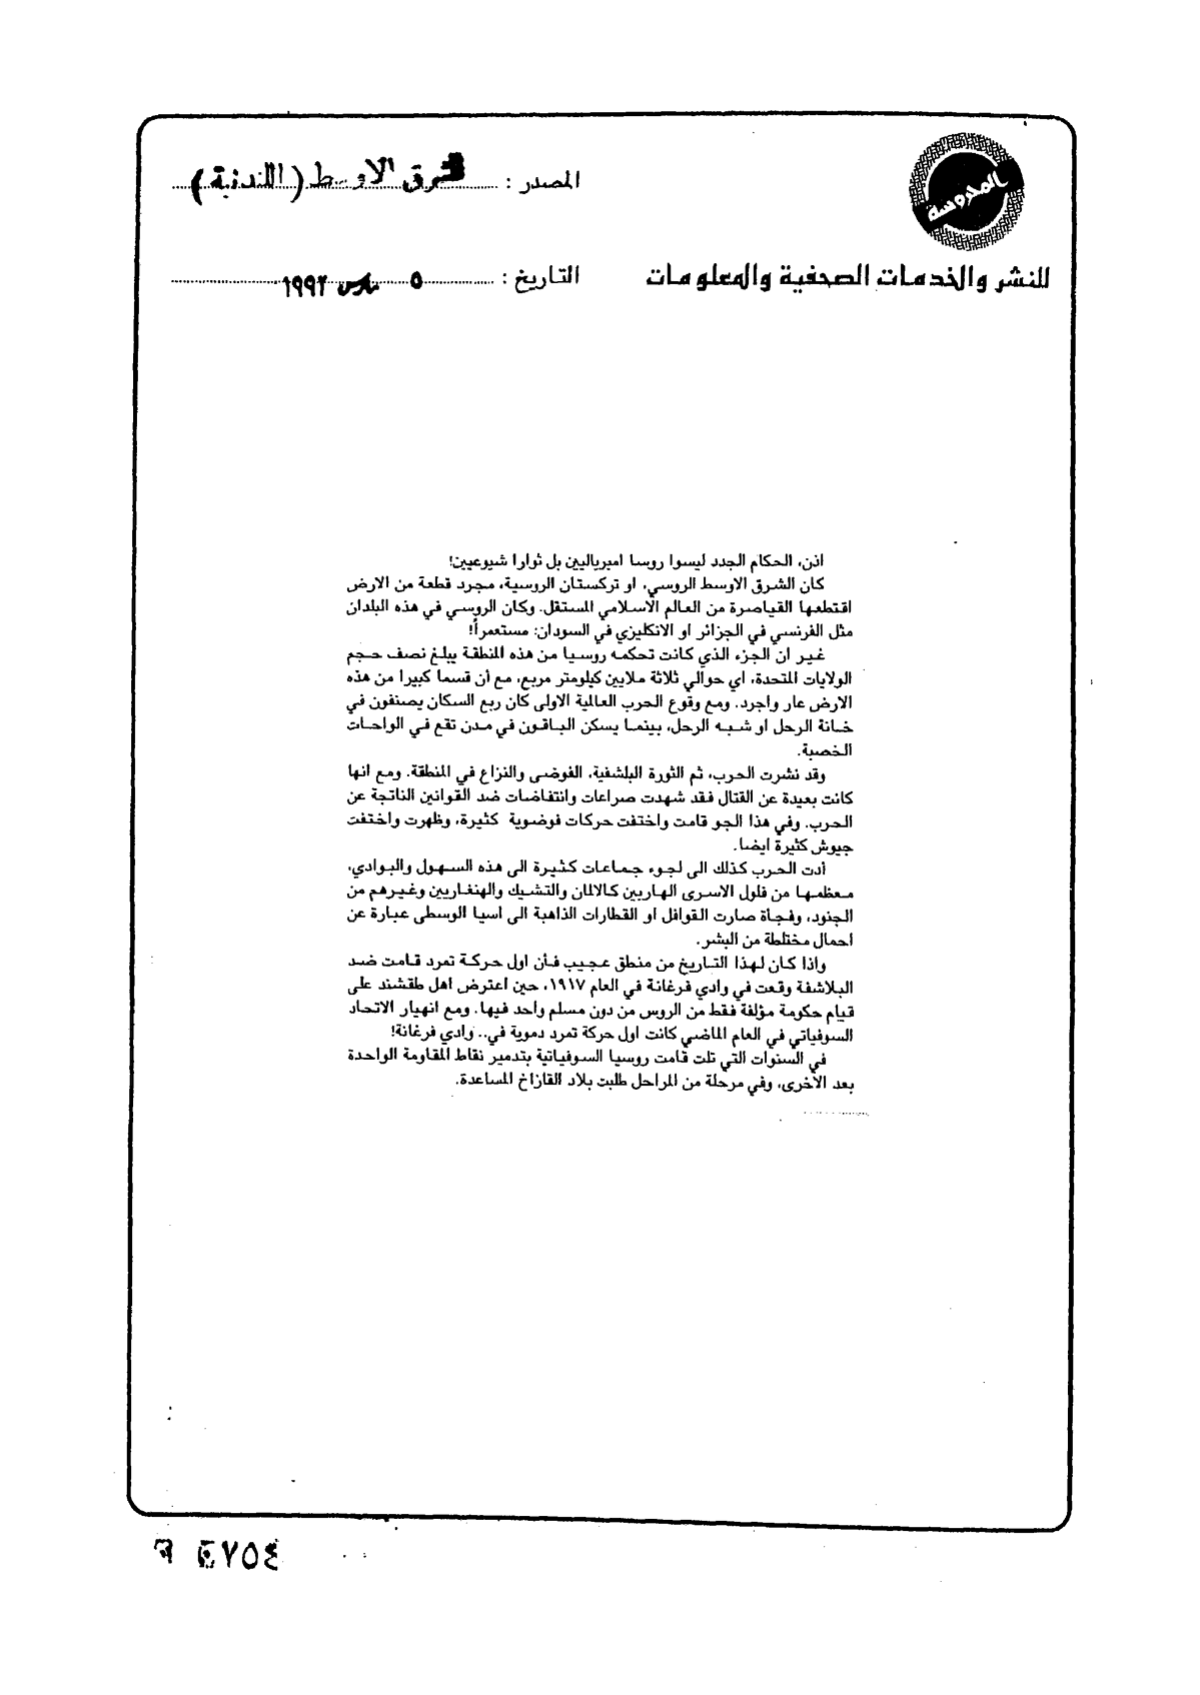 المحروسة
للنشر والخدمات الصحفية والمعلومات
المصدر : الشرق الاوسط (اللندنية)
التاريخ : ٥ مارس ١٩٩٢
اذن، الحكام الجدد ليسوا روسا امبرياليين بل ثوارا شيوعيين!
كان الشرق الاوسط الروسي، او تركستان الروسية، مجرد قطعة من الارض
اقتطعها القياصرة من العالم الاسلامي المستقل. وكان الروسي في هذه البلدان
مثل الفرنسي في الجزائر او الانكليزي في السودان: مستعمراً!
غير ان الجزء الذي كانت تحكمه روسيا من هذه المنطقة يبلغ نصف حجم
الولايات المتحدة، اي حوالي ثلاثة ملايين كيلومتر مربع، مع أن قسما كبيرا من هذه
الارض عار واجرد. ومع وقوع الحرب العالمية الاولى كان ربع السكان يصنفون في
خانة الرحل او شبه الرحل، بينما يسكن الباقون في مدن تقع في الواحات
الخصبة.
وقد نشرت الحرب، ثم الثورة البلشفية، الفوضى والنزاع في المنطقة. ومع انها
كانت بعيدة عن القتال فقد شهدت صراعات وانتفاضات ضد القوانين الناتجة عن
الحرب. وفي هذا الجو قامت واختفت حركات فوضوية كثيرة، وظهرت واختفت
جيوش كثيرة ايضا.
أدت الحرب كذلك الى لجوء جماعات كثيرة الى هذه السهول والبوادي،
معظمها من فلول الاسرى الهاربين كالالمان والتشيك والهنغاريين وغيرهم من
الجنود، وفجاة صارت القوافل او القطارات الذاهبة الى اسيا الوسطى عبارة عن
احمال مختلطة من البشر.
واذا كان لهذا التاريخ من منطق عجيب فأن اول حركة تمرد قامت ضد
البلاشفة وقعت في وادي فرغانة في العام ١٩١٧، حين اعترض اهل طقشند على
قيام حكومة مؤلفة فقط من الروس من دون مسلم واحد فيها. ومع انهيار الاتحاد
السوفياتي في العام الماضي كانت اول حركة تمرد دموية في.. وادي فرغانة!
في السنوات التي تلت قامت روسيا السوفياتية بتدمير نقاط المقاومة الواحدة
بعد الأخرى، وفي مرحلة من المراحل طلبت بلاد القازاخ المساعدة.